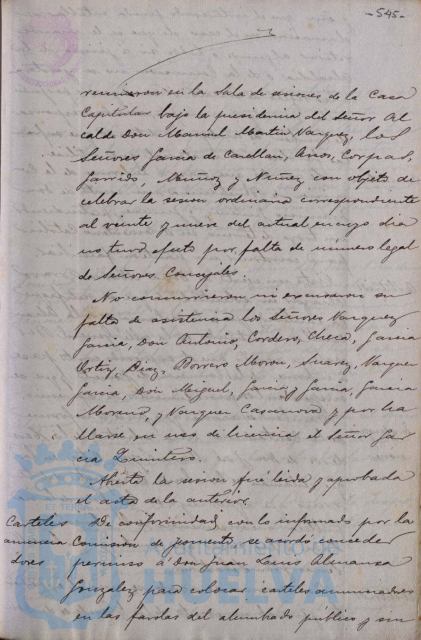 -545-
reunieron en la Sala de sesiones de la Casa
Capitular bajo la presidencia del Señor Al
calde Don Manuel Martin Vazquez, los
Señores Garcia de Castellan, Arcos, Corpas,
Garrido, Muñoz y Nuñez con objeto de
celebrar la sesion ordinaria correspondiente
al veinte y nueve del actual en cuyo dia
no tuvo efecto por falta de número legal
de Señores Concejales.
No concurrieron ni excusaron su
falta de asistencia los Señores Vazquez
Garcia, Don Antonio, Cordero, Checa, Garcia
Ortiz, Diaz, Borrero Moron, Suarez, Vazquez
Garcia, Don Miguel, Garcia y Garcia, Garcia
Moreno, y Vazquez Casanova y por ha
llarse en uso de licencia el Señor Gar
cia Quintero.
Abierta la sesion fué leida y aprobada
el acta de la anterior.
Carteles De conformidad con lo informado por la
anuncia Comision de fomento se acordó conceder
dores permiso á don Juan Luis Almanza
Gonzalez para colocar carteles anunciadores
en las farolas del alumbrado público y sin
Ayuntamiento de
HUELVA